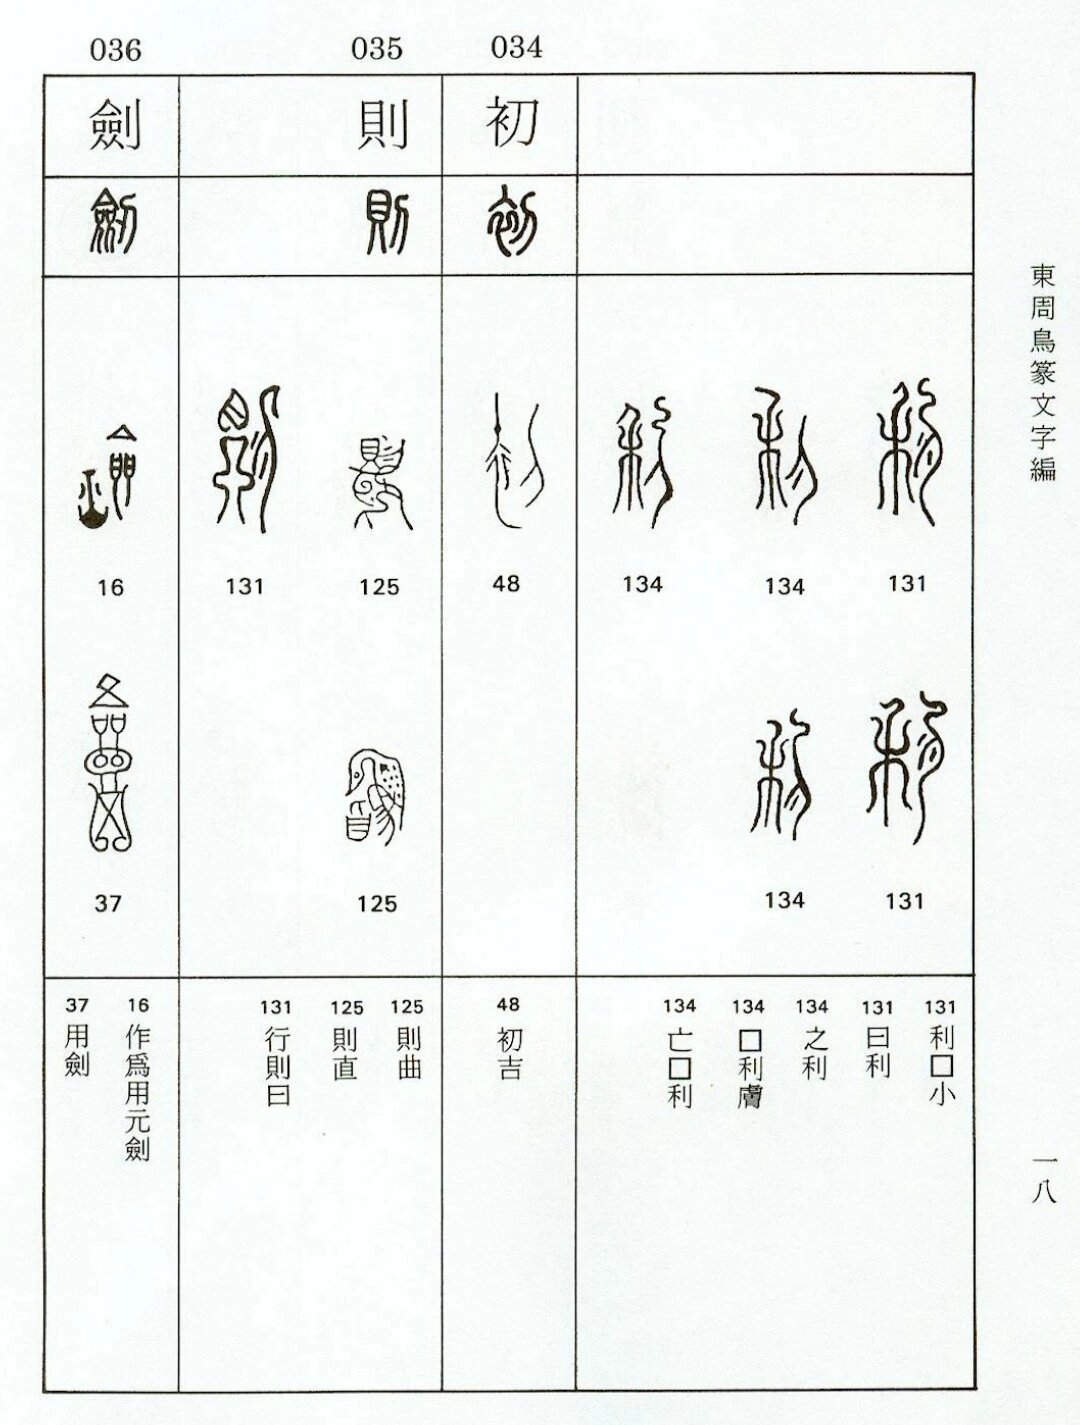 東周鳥篆文字編
一八
034
035
036
初
則
劍
初
則
劍
131
134
134
48
125
131
16
131
134
125
37
131
利□小
131
曰利
134
之利
134
□利膚
134
亡□利
48
初吉
125
則曲
125
則直
131
行則曰
16
作爲用元劍
37
用劍